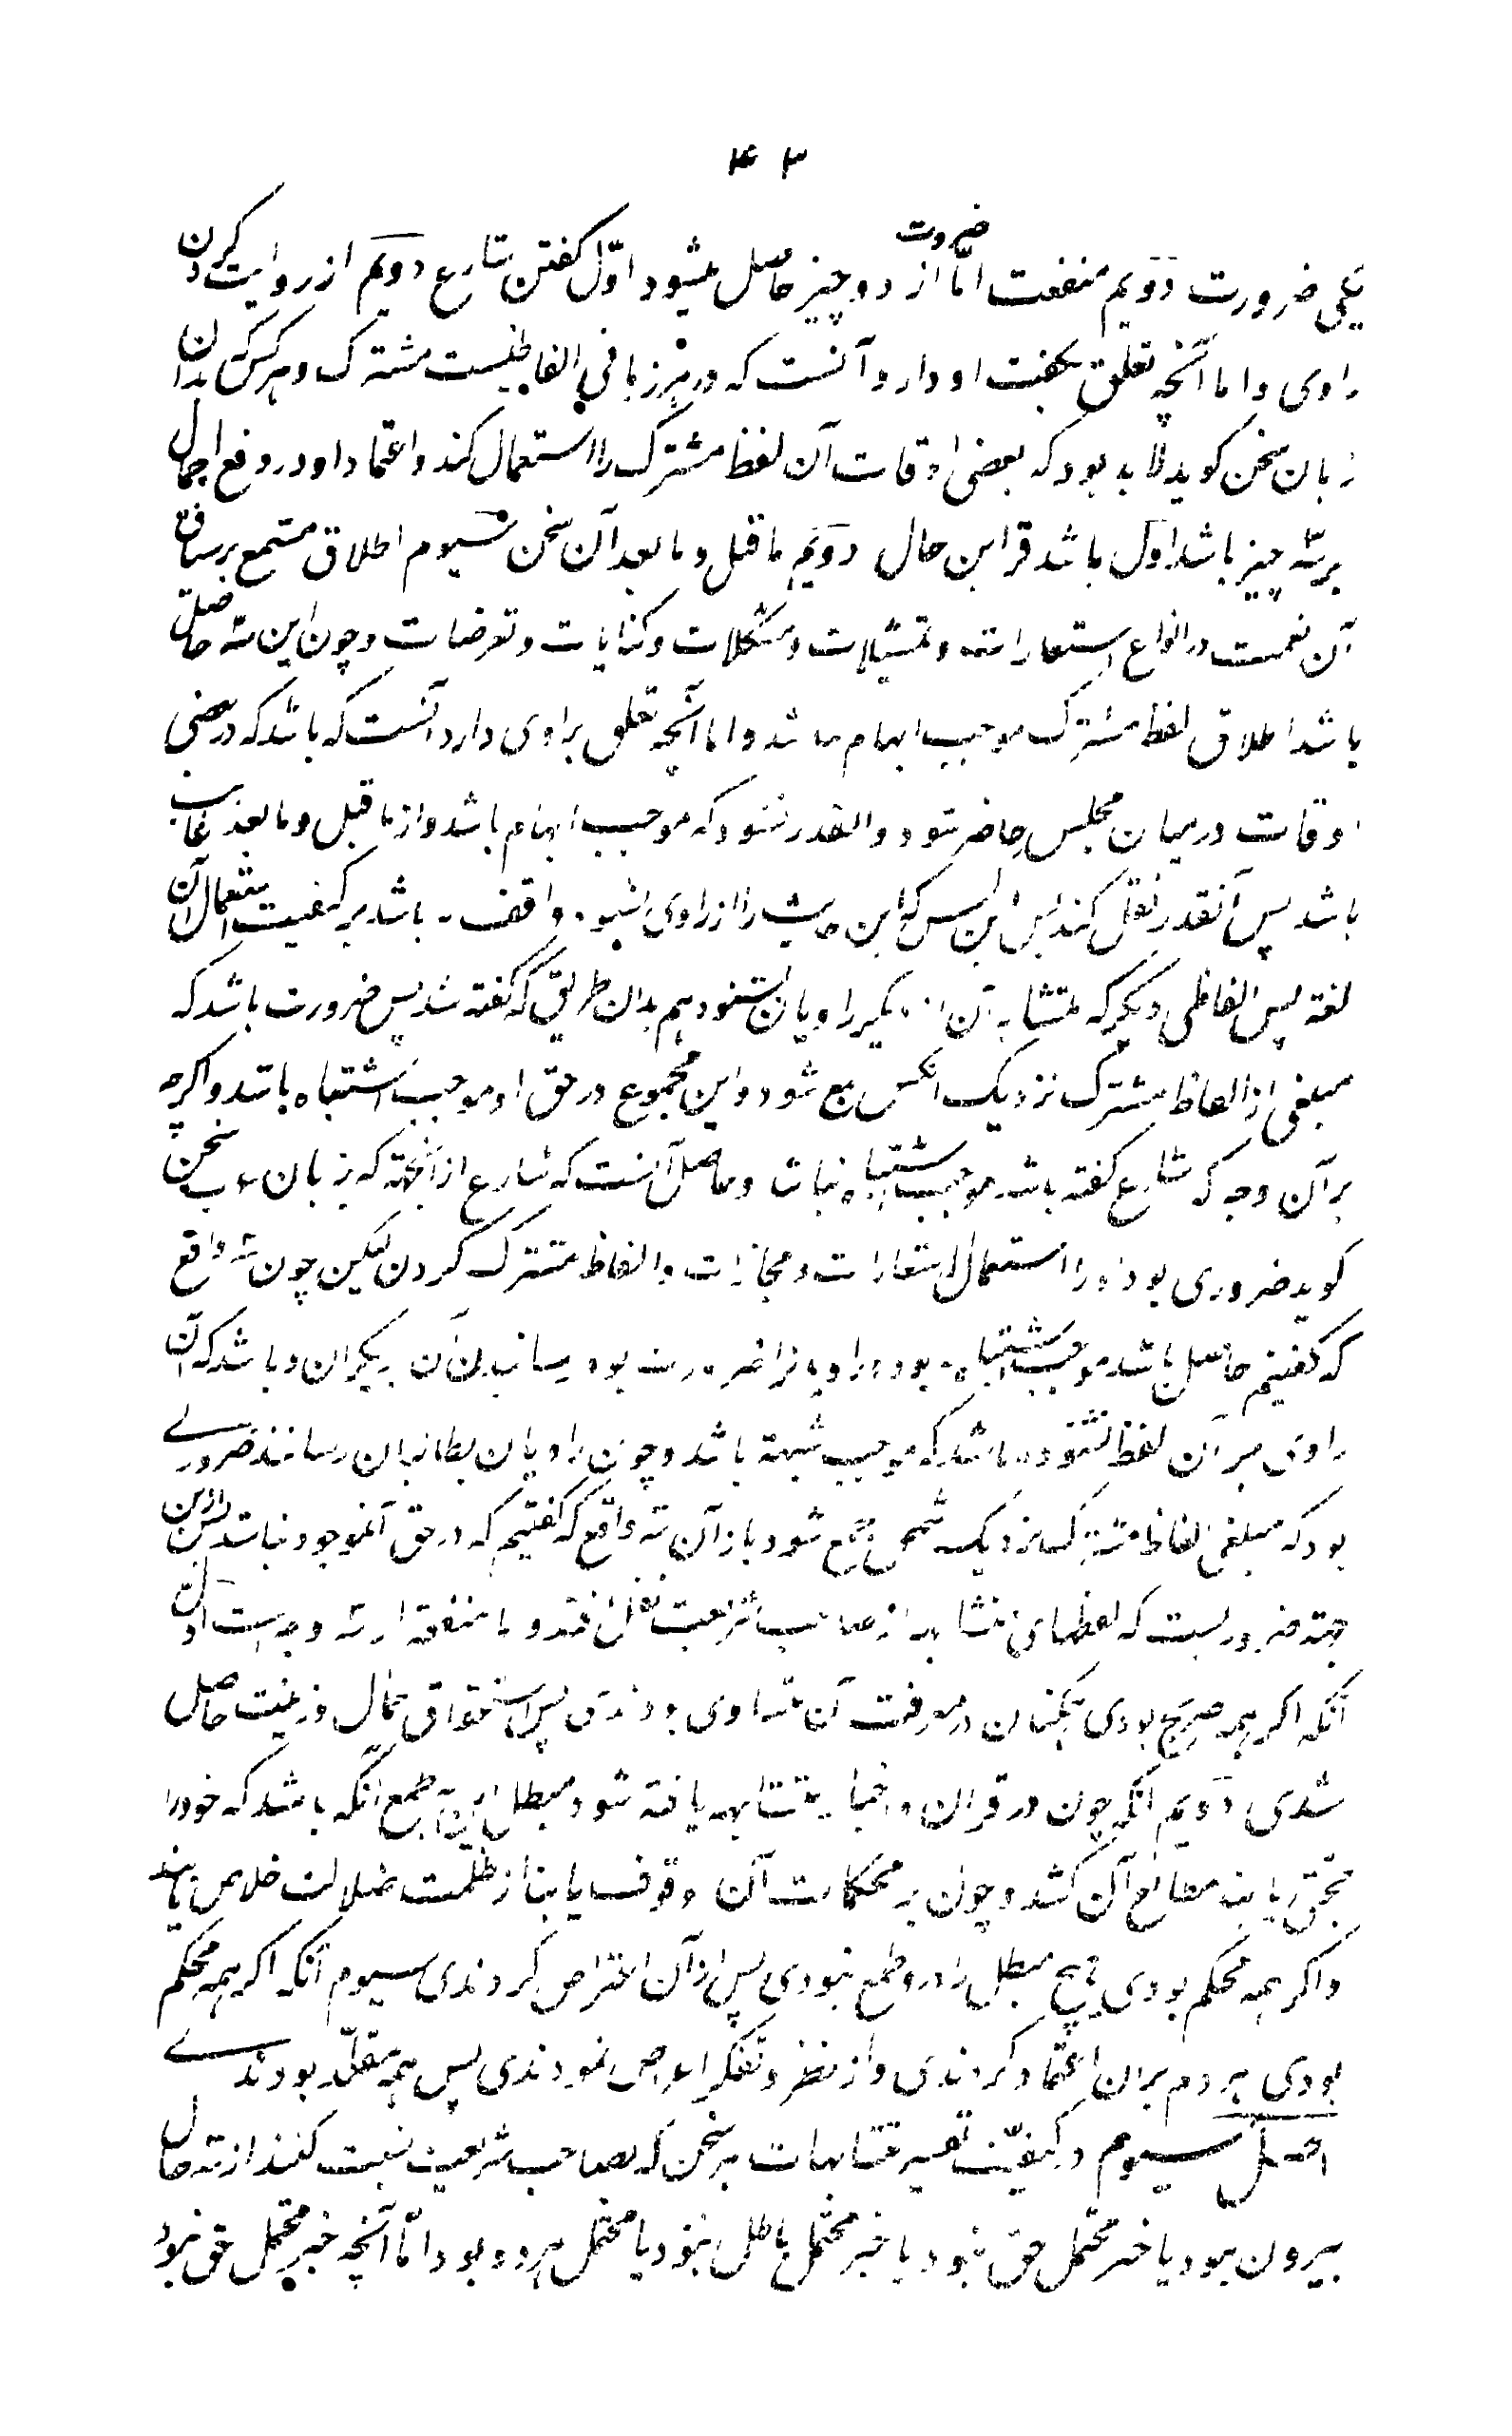 ۴۳
یکی ضرورت دویم منفعت اما ضرورت از دو چیز حاصل میشود اول کفتن شارع دویم از روایت کردن
راوی و اما آنچه تعلق بکفت او دارد آنست که در هر زبانی الفاظیست مشترک و هر کس که بدان
زبان سخن کوید لابد بود که بعضی اوقات آن لفظ مشترک را استعمال کند و اعتماد او در رفع اجمال
بر سه چیز باشد اول باشد قراین حال دویم ما قبل و ما بعد آن سخن سیوم اطلاق مستمع بر سیاق
آن نعمت در انواع استعارات و تمثیلات و مشکلات و کنایات و تعرضات و چون این سه حاصل
باشد اطلاق لفظ مشترک موجب ابهام باشد و اما آنچه تعلق براوی دارد آنست که باشد که در بعضی
اوقات در میان مجلس حاضر شود و انقدر شنود که موجب ابهام باشد و از ما قبل و ما بعد غایب
باشد پس آنقدر نقل کند پس این کس که این حدیث را از راوی شنود واقف نباشد بر کیفیت استعمال آن
لفة پس الفاظی دیکر که متشابه آن از دیکر راویان شنود هم بدان طریق که کفته شد پس ضرورت باشد که
مبلغی از الفاظ مشترک نزدیک انکس جمع شود و این مجموع در حق او موجب اشتباه باشد و اکرچه
بر آن وجه که شارع کفته باشد موجب اشتباه نباشد و حاصل آنست که شارع از آنجهة که بزبان عرب سخن
کوید ضروری بود او را استعمال استعارات و مجازات و الفاظ مشترک کردن لیکن چون سه واقع
که کفتیم حاصل باشد موجب اشتباه نبود و راویه را ضرورت بود رسانیدن آن بدیکران و باشد که آن
راوی هر آن لفظ شنوده باشد که موجب شبهة باشد و چون راویان بطالبان رسانند ضروری
بود که مبلغی الفاظ مشترک نزدیک شخص جمع شود باز آن سه واقع که کفتیم که در حق آنموجود نباشد پس از این
جهة ضروریست که لفظهای متشابه از صاحب شریعت نقل افتد و اما منفعة از سه وجه است اول
آنکه اکر همه صریح بودی همکنان در معرفت آن متساوی بودندی پس استحقاق کمال و زینت حاصل
شدی دویم آنکه چون در قران و اخبار متشابهه یافته شود مبطل را در آن طمع آنکه باشد که خود را
محق یابند مطالع آن کشد و چون بر محکمات آن وقوف یابند از ظلمت ضلالت خلاص یابند
و اکر همه محکم بودی هیچ مبطل را در و طمع نبودی پس از آن اعتراض کردندی سیوم آنکه اکر همه محکم
بودی مردم بران اعتماد کردندی و از نظر و تفکر اعراض نمودندی پس همه مقلد بودندے
اصل سیوم در کیفیت تفسیر متشابهات هر سخن که بصاحب شریعت نسبت کنند از سه حال
بیرون نبود یا خبر محتمل حق نبود یا خبر محتمل باطل نبود یا محتمل هر دو بود اما آنچه خبر محتمل حق نبود